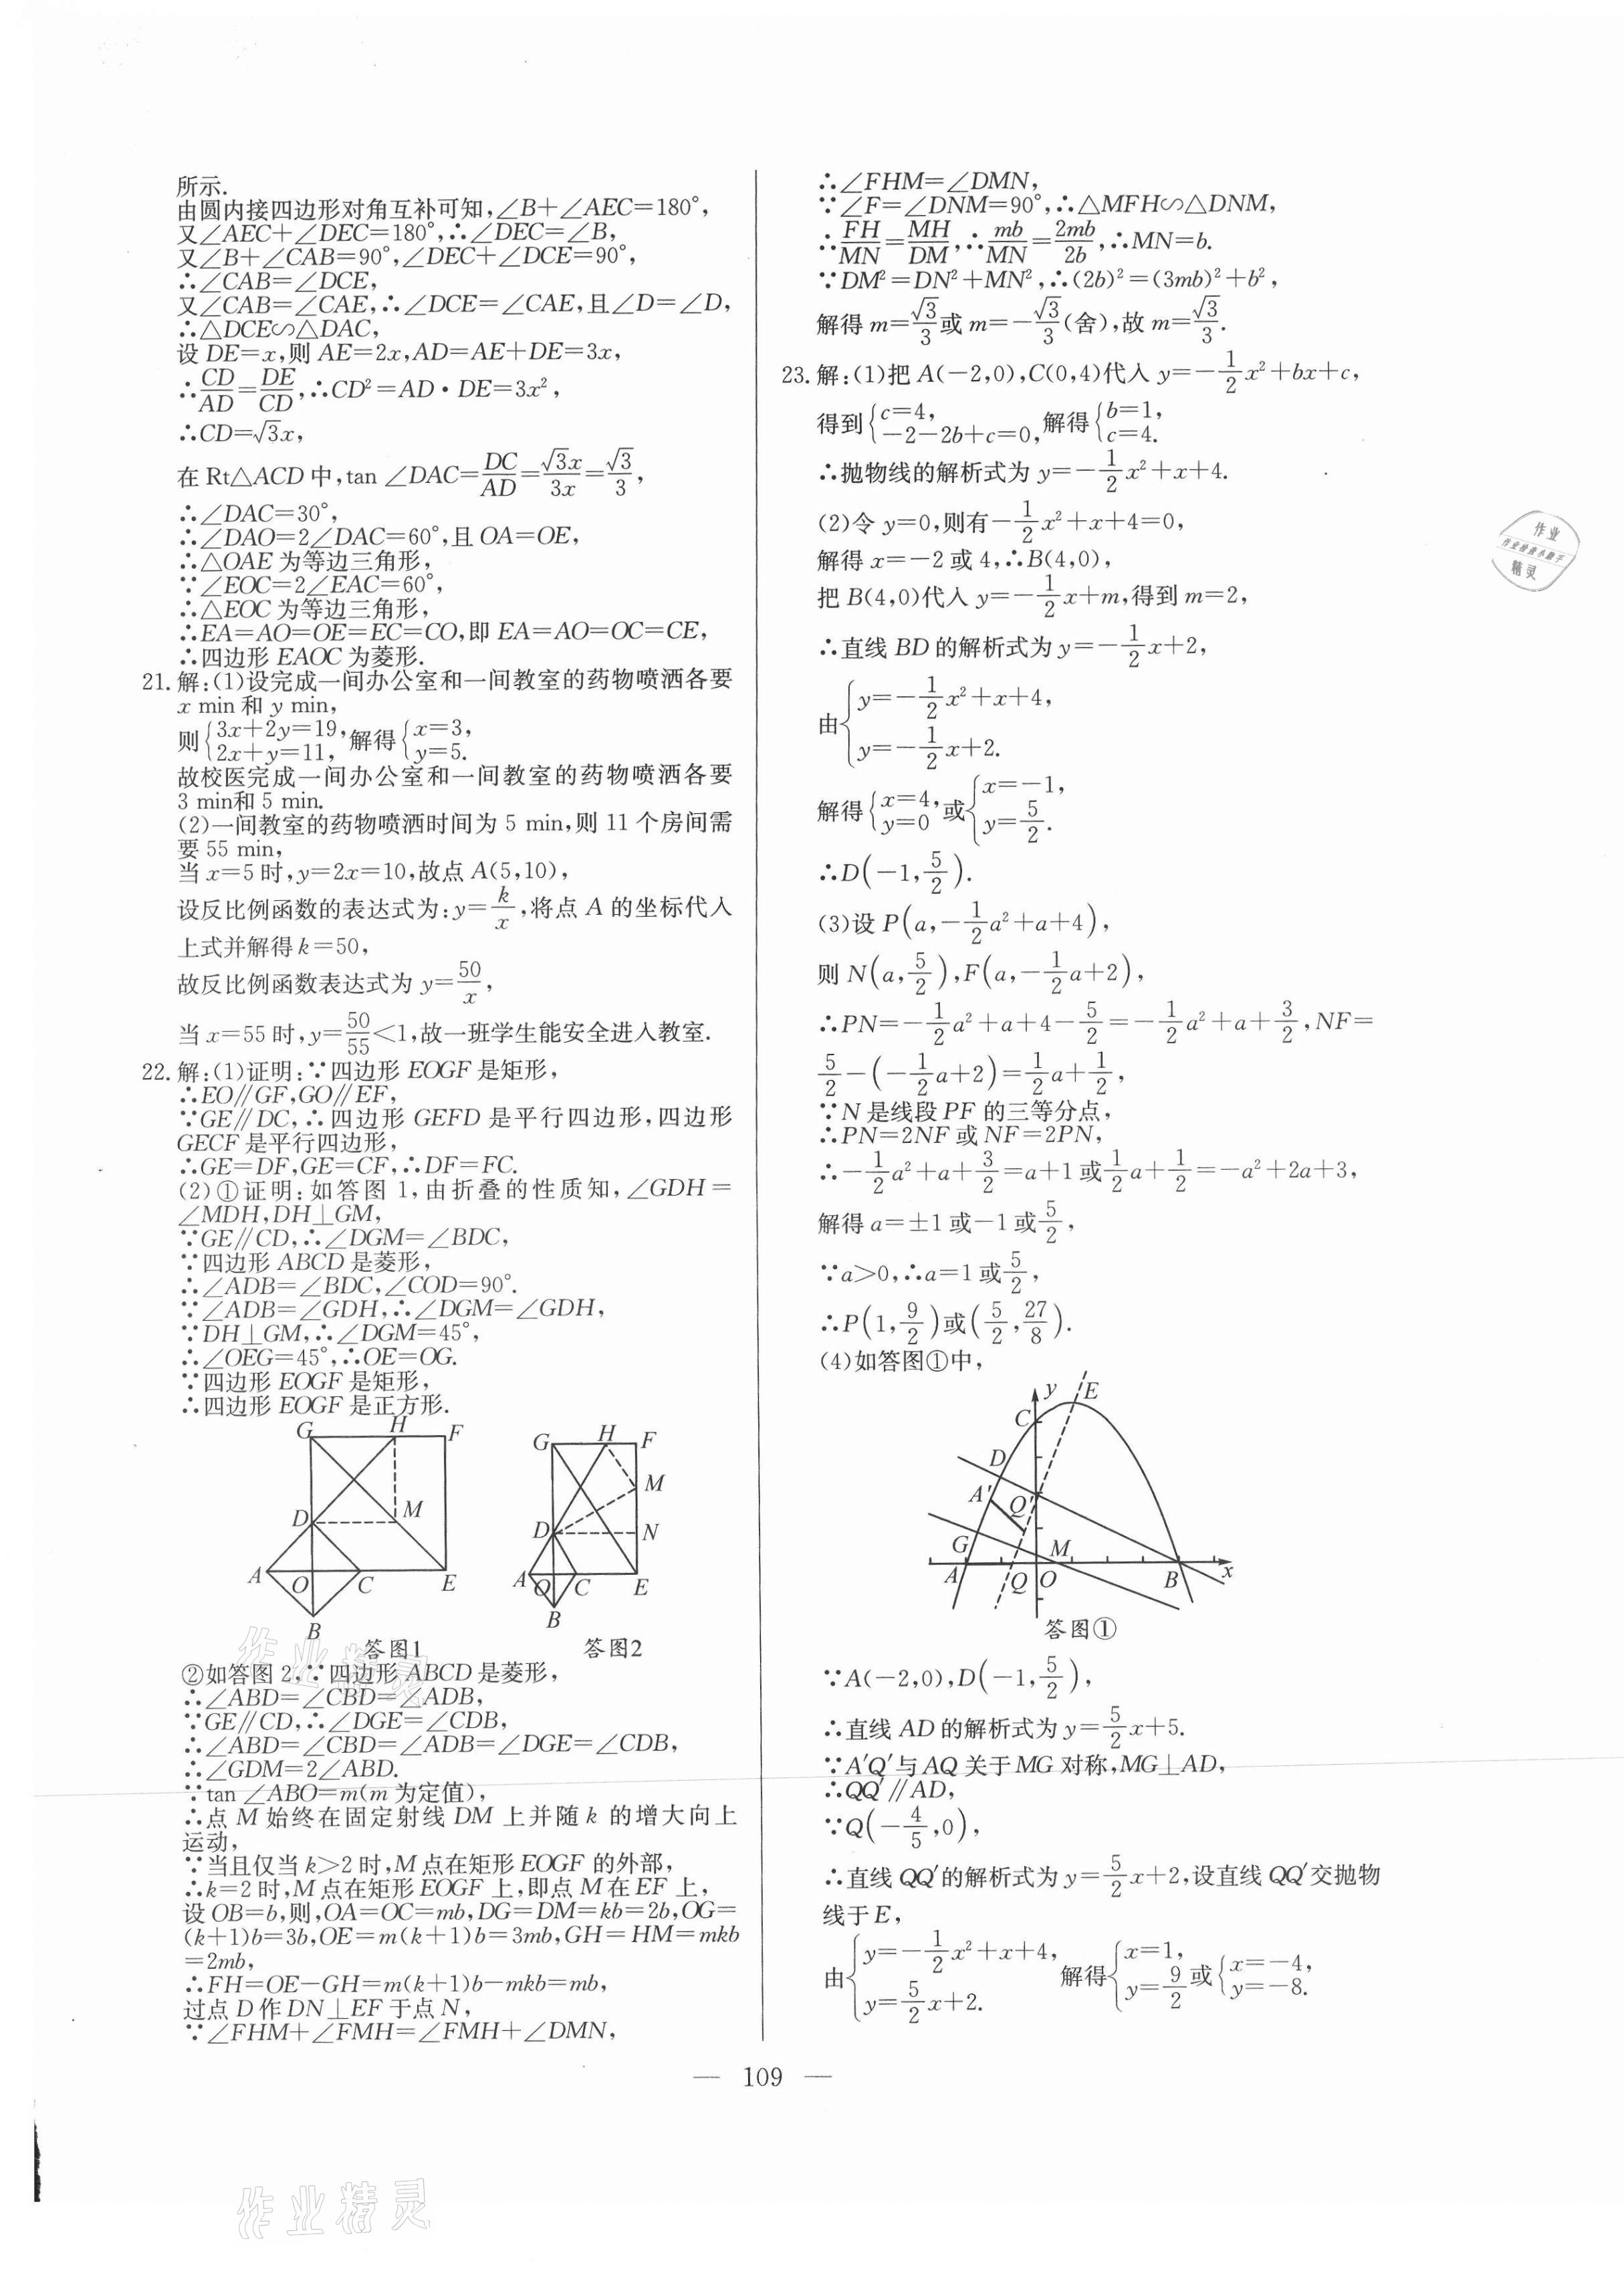 所示.
由圆内接四边形对角互补可知,∠B+∠AEC=180°,
又∠AEC+∠DEC=180°,∴∠DEC=∠B,
又∠B+∠CAB=90°,∠DEC+∠DCE=90°,
∴∠CAB=∠DCE,
又∠CAB=∠CAE,∴∠DCE=∠CAE,且∠D=∠D,
∴△DCE∽△DAC,
设 DE=x,则 AE=2x,AD=AE+DE=3x,
∴CD/AD=DE/CD,∴CD²=AD·DE=3x²,
∴CD=√3x,
在 Rt△ACD 中,tan ∠DAC=DC/AD=√3x/3x=√3/3,
∴∠DAC=30°,
∴∠DAO=2∠DAC=60°,且 OA=OE,
∴△OAE 为等边三角形,
∵∠EOC=2∠EAC=60°,
∴△EOC 为等边三角形,
∴EA=AO=OE=EC=CO,即 EA=AO=OC=CE,
∴四边形 EAOC 为菱形.
21. 解:(1)设完成一间办公室和一间教室的药物喷洒各要
x min 和 y min,
则{3x+2y=19, 2x+y=11, 解得{x=3, y=5.
故校医完成一间办公室和一间教室的药物喷洒各要
3 min和 5 min.
(2)一间教室的药物喷洒时间为 5 min,则 11 个房间需
要 55 min,
当 x=5 时,y=2x=10,故点 A(5,10),
设反比例函数的表达式为:y=k/x,将点 A 的坐标代入
上式并解得 k=50,
故反比例函数表达式为 y=50/x,
当 x=55 时,y=50/55<1,故一班学生能安全进入教室.
22. 解:(1)证明:∵四边形 EOGF 是矩形,
∴EO∥GF,GO∥EF,
∵GE∥DC,∴四边形 GEFD 是平行四边形,四边形
GECF 是平行四边形,
∴GE=DF,GE=CF,∴DF=FC.
(2)①证明:如答图 1,由折叠的性质知,∠GDH=
∠MDH,DH⊥GM,
∵GE∥CD,∴∠DGM=∠BDC,
∵四边形 ABCD 是菱形,
∴∠ADB=∠BDC,∠COD=90°.
∵∠ADB=∠GDH,∴∠DGM=∠GDH,
∵DH⊥GM,∴∠DGM=45°,
∴∠OEG=45°,∴OE=OG.
∵四边形 EOGF 是矩形,
∴四边形 EOGF 是正方形.
G H F
D M
A O C E
B
答图1
G H F
M
D N
A O C E
B
答图2
②如答图 2,∵四边形 ABCD 是菱形,
∴∠ABD=∠CBD=∠ADB,
∵GE∥CD,∴∠DGE=∠CDB,
∴∠ABD=∠CBD=∠ADB=∠DGE=∠CDB,
∴∠GDM=2∠ABD.
∵tan ∠ABO=m(m 为定值),
∴点 M 始终在固定射线 DM 上并随 k 的增大向上
运动,
∵当且仅当 k>2 时,M 点在矩形 EOGF 的外部,
∴k=2 时,M 点在矩形 EOGF 上,即点 M 在 EF 上,
设 OB=b,则,OA=OC=mb,DG=DM=kb=2b,OG=
(k+1)b=3b,OE=m(k+1)b=3mb,GH=HM=mkb
=2mb,
∴FH=OE-GH=m(k+1)b-mkb=mb,
过点 D 作 DN⊥EF 于点 N,
∵∠FHM+∠FMH=∠FMH+∠DMN,
∴∠FHM=∠DMN,
∵∠F=∠DNM=90°,∴△MFH∽△DNM,
∴FH/MN=MH/DM,∴mb/MN=2mb/2b,∴MN=b.
∵DM²=DN²+MN²,∴(2b)²=(3mb)²+b²,
解得 m=√3/3或 m=-√3/3(舍),故 m=√3/3.
23. 解:(1)把 A(-2,0),C(0,4)代入 y=-1/2x²+bx+c,
得到{c=4, -2-2b+c=0, 解得{b=1, c=4.
∴抛物线的解析式为 y=-1/2x²+x+4.
(2)令 y=0,则有-1/2x²+x+4=0,
解得 x=-2 或 4,∴B(4,0),
把 B(4,0)代入 y=-1/2x+m,得到 m=2,
∴直线 BD 的解析式为 y=-1/2x+2,
由{y=-1/2x²+x+4, y=-1/2x+2.
解得{x=4, y=0 或{x=-1, y=5/2.
∴D(-1,5/2).
(3)设 P(a,-1/2a²+a+4),
则 N(a,5/2),F(a,-1/2a+2),
∴PN=-1/2a²+a+4-5/2=-1/2a²+a+3/2,NF=
5/2-(-1/2a+2)=1/2a+1/2,
∵N 是线段 PF 的三等分点,
∴PN=2NF 或 NF=2PN,
∴-1/2a²+a+3/2=a+1 或1/2a+1/2=-a²+2a+3,
解得 a=±1 或-1 或5/2,
∵a>0,∴a=1 或5/2,
∴P(1,9/2)或(5/2,27/8).
(4)如答图①中,
y E
C
D
A′ Q′
G M
A Q O B x
答图①
∵A(-2,0),D(-1,5/2),
∴直线 AD 的解析式为 y=5/2x+5.
∵A′Q′与 AQ 关于 MG 对称,MG⊥AD,
∴QQ′∥AD,
∵Q(-4/5,0),
∴直线 QQ′的解析式为 y=5/2x+2,设直线 QQ′交抛物
线于 E,
由{y=-1/2x²+x+4, y=5/2x+2. 解得{x=1, y=9/2 或{x=-4, y=-8.
— 109 —
作业
作业检查小助手
精灵
作业精灵
作业精灵